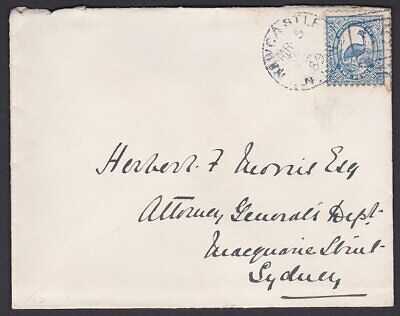 NEWCASTLE
MR 5
89
TWO PENCE
Herbert F Morris Esq
Attorney General's Dept.
Macquarie Street
Sydney